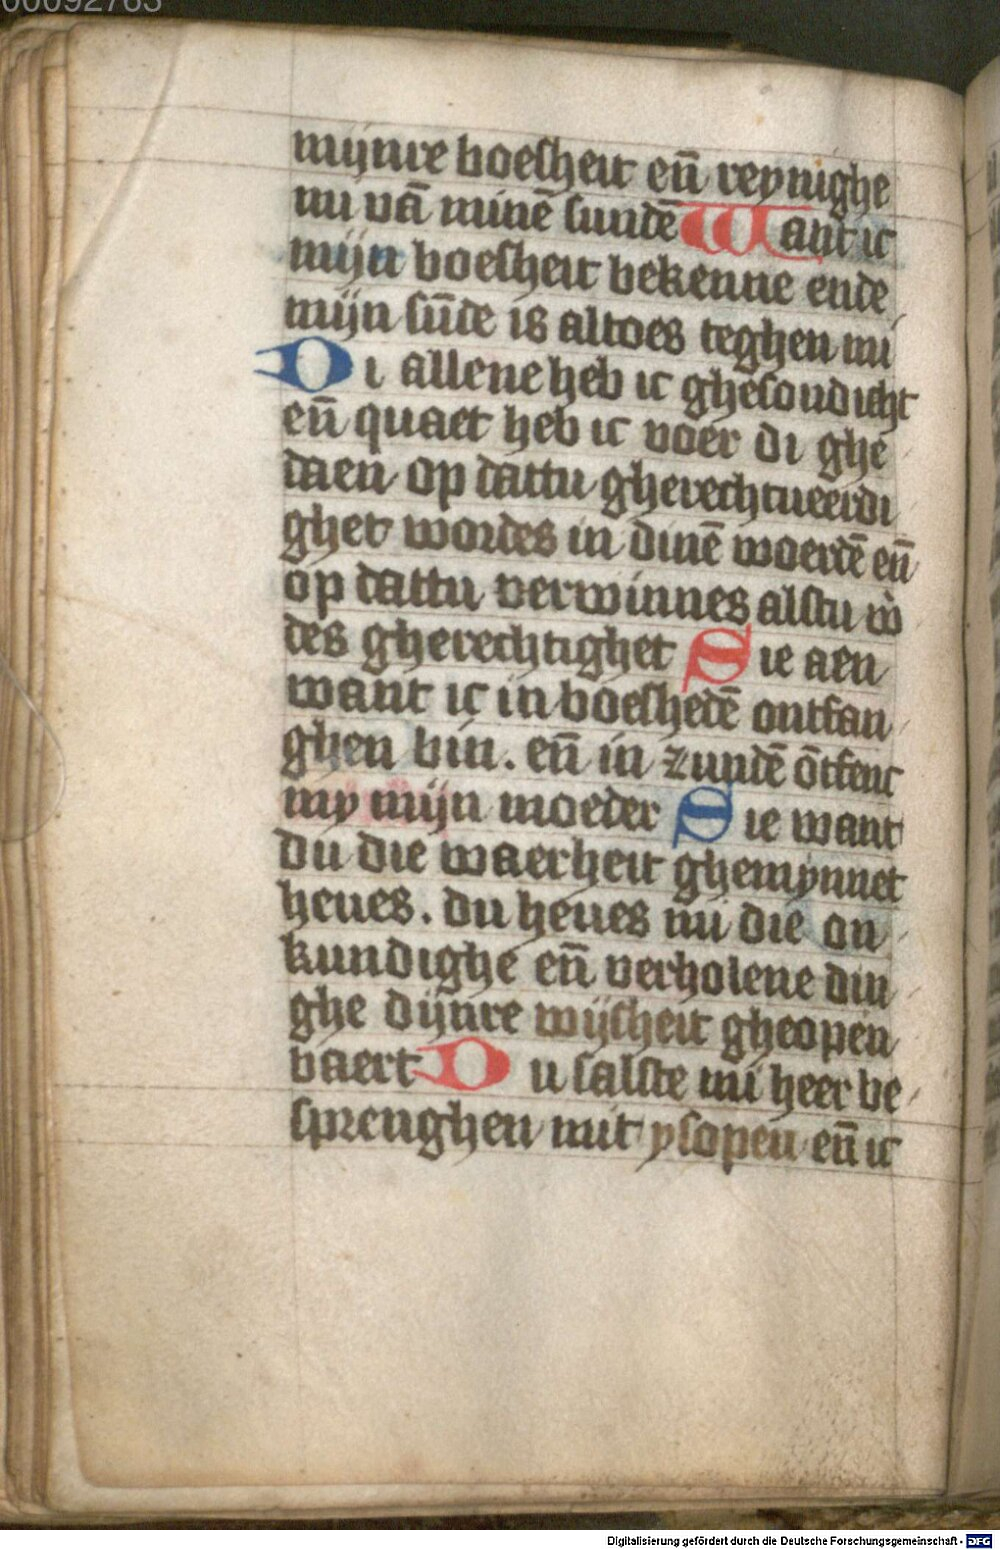 00092763
mijnre boesheit en̄ reynighe
mi vā minē sundē Want ic
mijn boesheit bekenne ende
mijn sūde is altoes teghen mi
Di allene heb ic ghesondicht
en̄ quaet heb ic voer di ghe
daen op dattu gherechtueerdi
ghet wordes in dinē woerdē en̄
op dattu verwinnes alstu w̄
des gherechtighet Sie aen
want ic in boeshedē ontfan
ghen bin. en̄ in zundē ōtfenc
my mijn moeder Sie want
du die waerheit ghemynnet
heues. du heues mi die on
kundighe en̄ verholene din
ghe dijnre wijsheit gheopen
baert Du salste mi heer be
sprenghen mit ysopen en̄ ic
Digitalisierung gefördert durch die Deutsche Forschungsgemeinschaft - DFG